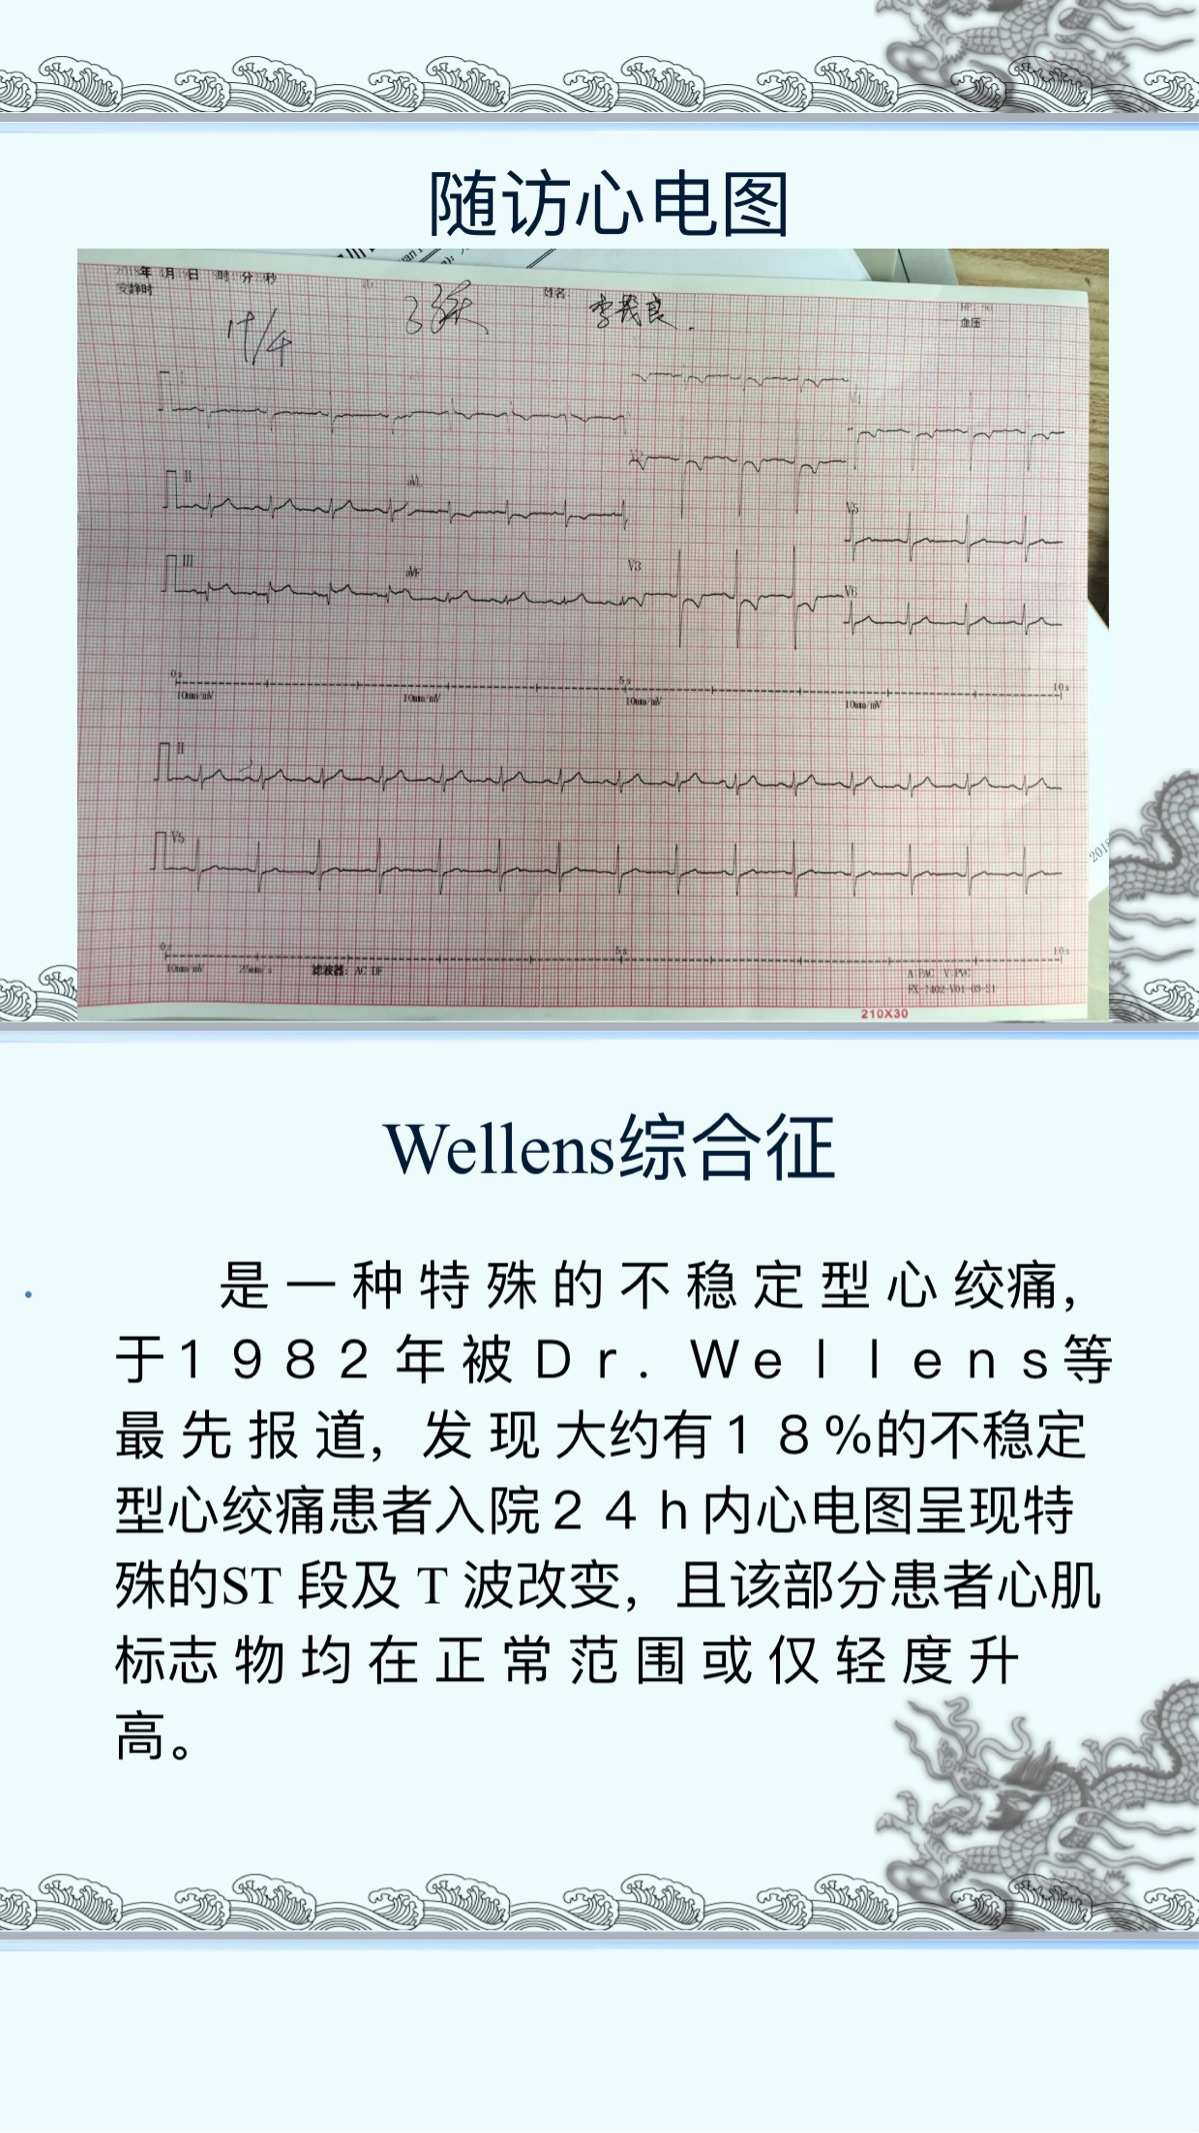 随访心电图
年 月 日 时 分 秒
安静时
姓名
李茂良.
血压
II
aVL
V5
III
aVF
V3
V6
0s
5s
10s
10mm/mV
10mm/mV
10mm/mV
10mm/mV
II
V5
0s
5s
10s
10mm/mV 25mm/s 滤波器: AC DF
A:PAC V:PVC
210X30
Wellens综合征
是一种特殊的不稳定型心绞痛,
于1982年被Dr. Wellens等
最先报道, 发现大约有18%的不稳定
型心绞痛患者入院24h内心电图呈现特
殊的ST 段及 T 波改变, 且该部分患者心肌
标志物均在正常范围或仅轻度升
高。